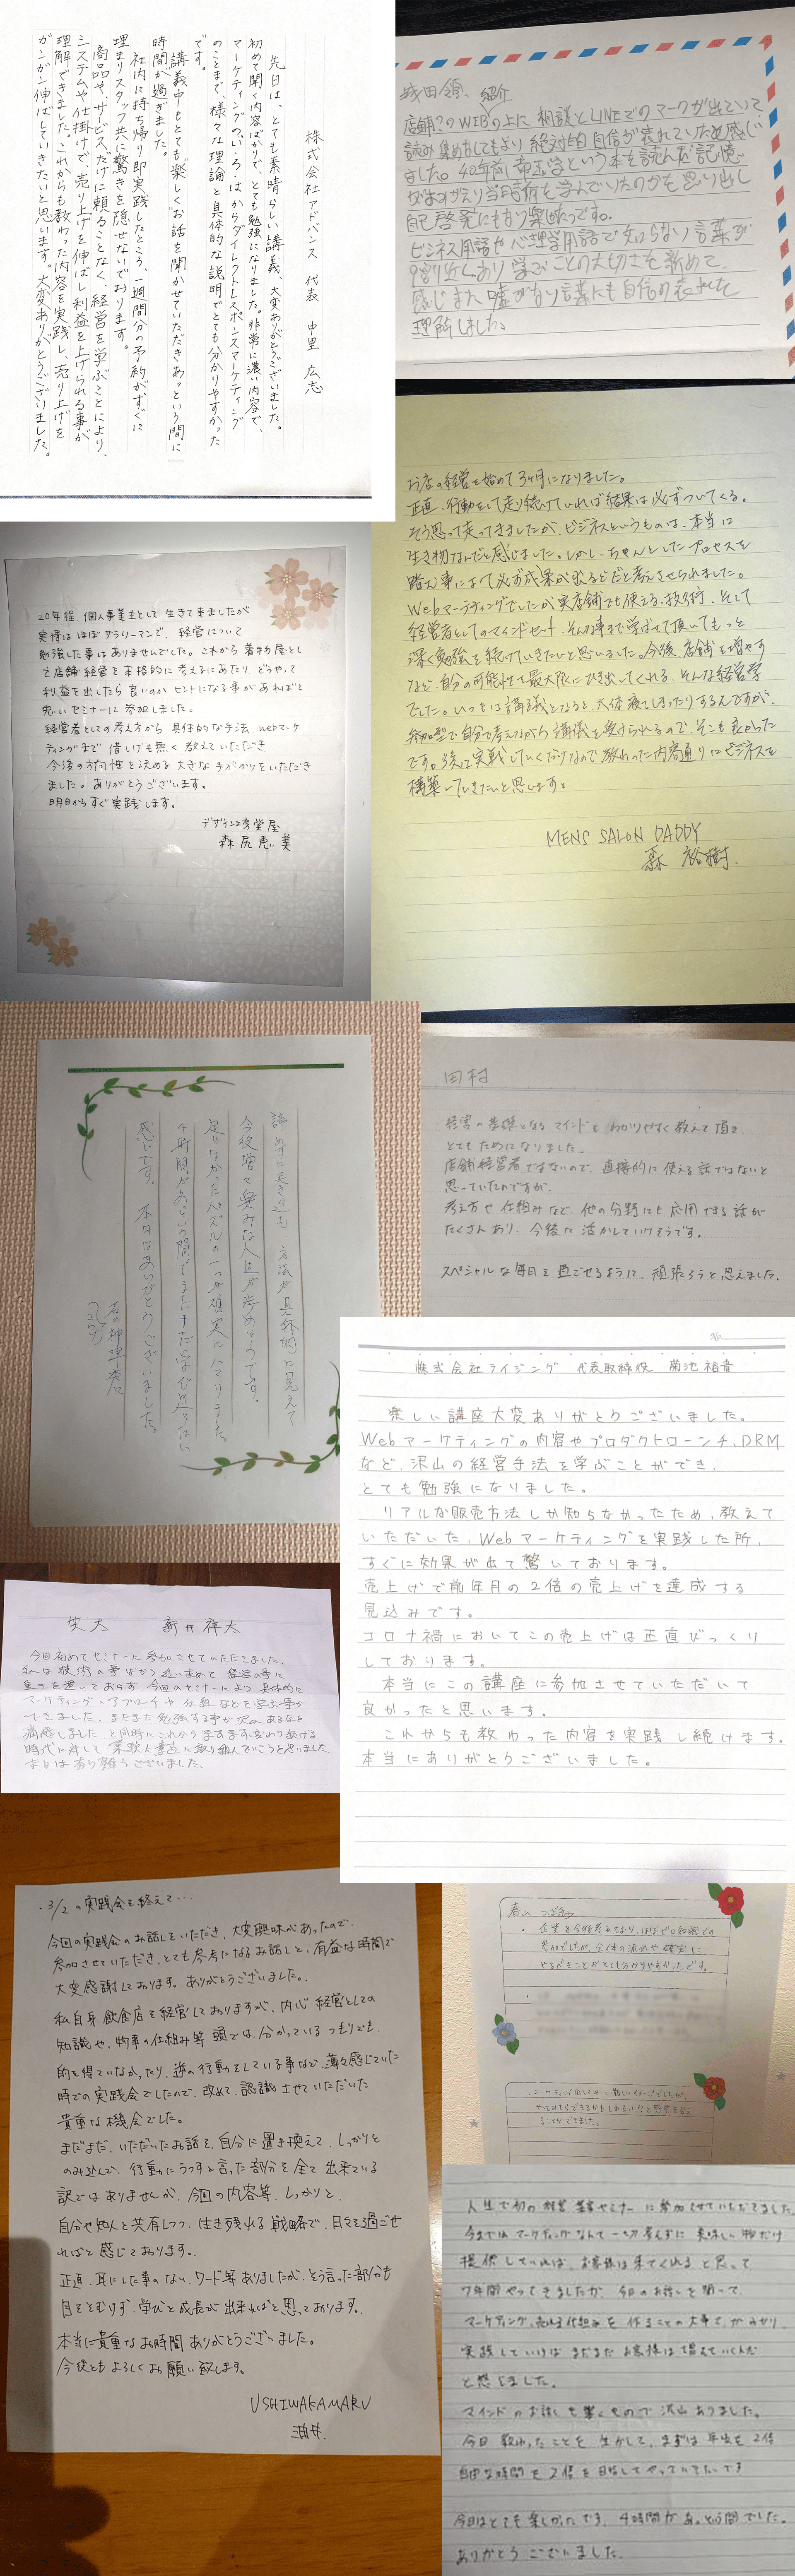 株式会社アドバンス 代表 中里 広志
先日は、とても素晴らしい講義、大変ありがとうございました。
初めて聞く内容ばかりで、とても勉強になりました。非常に濃い内容で、
マーケティングのいろはからダイレクトレスポンスマーケティング
のことまで、様々な理論と具体的な説明でとても分かりやすかった
です。
講義中もとても楽しくお話を聞かせていただきあっという間に
時間が過ぎました。
社内に持ち帰り即実践したところ、一週間分の予約がすぐに
埋まりスタッフ共に驚きを隠せないでおります。
商品や、サービスだけに頼ることなく、経営を学ぶことにより、
システムや仕掛けで、売り上げを伸ばし利益を上げられる事が
理解できました。これからも教わった内容を実践し、売り上げを
ガンガン伸ばしていきたいと思います。大変ありがとうございました。
紹介
店舗?のWEBの上に相談とLINEでのマークが出ていて
読み集めをしてもより絶対的自信が表れていため感じ
ました。40年前に帝王学という本を読んだ記憶
がよみがえり当時話術を学んでいたのかを思り出し
自己啓発にもなり楽しめたです。
ビジネス用語や心理学用語で知らない言葉が
9割近くあり学ぶことの大切さを新めて
感じまた、嘘がない言葉にも自信の表れだと
理解しました。
お店の経営を始めて3ヶ月になりました。
正直、行動をして走り続けていれば結果は必ずついてくる。
そう思って走ってきましたが、ビジネスというものは、本当は
生き物なんだと感じました。しかし、ちゃんとしたプロセスを
踏む事によって必ず成果が出るどだと考えさせられました。
Webマーケティングでしたが実店舗でも使える技術、そして
経営者としてのマインドセット、そんな事まで学ばせて頂いてもっと
深く勉強を続けていきたいと思いました。今後、店舗を増やす
など自分の可能性を最大限にひき出してくれる、そんな経営学
でした。いつもは講義となると、大体寝てしまったりするんですが、
参加型で自分で考えながら講義を受けられるので、そこも良かった
です。3後は実戦していくだけなので教わった内容通りにビジネスを
構築していきたいと思います。
MENS SALON DADDY
森 裕樹
20年程、個人事業主として生きて来ましたが
実情はほぼサラリーマンで、経営について
勉強した事はありませんでした。これから着物屋とし
て店舗経営を本格的に考えるにあたり どうやって
利益を出したら良いのか ヒントになる事があればと
思いセミナーに参加しました。
経営者としての考え方から 具体的な手法、webマーケ
ティングまで 惜しげも無く教えていただき
今後の方向性を決める大きな手がかりをいただき
ました。ありがとうございます。
明日からすぐ実践します。
デザイン工房堂屋
森尻恵美
諦めずに突き進む、方法が具体的に見えて
今後増々楽みな人生が歩めそうです。
足りなかったパズルの一つが確実にハマりました。
4時間があっという間でまだまだ学び足りない
感じです。本日はありがとうございました。
田村
経営の基礎となるマインドをわかりやすく教えて頂き
とてもためになりました。
店舗経営者ではないので、直接的に使える話ではないと
思っていたのですが、
考え方や仕組みなど、他の分野にも応用できる話が
たくさんあり、今後に活かしていけそうです。
スペシャルな毎日を過ごせるように、頑張ろうと思えました。
No.
株式会社ライジング 代表取締役 菊池裕章
楽しい講座大変ありがとうございました。
Webマーケティングの内容やプロダクトローンチ、DRM
など、沢山の経営手法を学ぶことができ、
とても勉強になりました。
リアルな販売方法しか知らなかったため、教えて
いただいた、Webマーケティングを実践した所、
すぐに効果が出て驚いております。
売上げで前年月の2倍の売上げを達成する
見込みです。
コロナ禍においてこの売上げは正直びっくり
しております。
本当にこの講座に参加させていただいて
良かったと思います。
これからも教わった内容を実践し続けます。
本当にありがとうございました。
笑大 新井祥大
今日初めてセミナーに参加させていただきました。
私は技術の事ばかり追い求めて 経営の事に
重きを置いておらず 今回のセミナーにより 具体的に
マーケティング、アプローチや仕組などを学ぶ事が
できました。まだまだ勉強する事が沢山あるなと
痛感しましたと同時にこれからますます変わり続ける
時代に対して 柔軟に素直に取り組んでいこうと思いました。
本日は有り難うございました。
・3/2の実践会を終えて…
今回の実践会のお話しをいただき、大変興味があったので、
参加させていただき、とても参考になるお話しと、有益な時間で
大変感謝しております。ありがとうございました。
私自身 飲食店を経営しておりますが、内心 経営としての
知識や、物事の仕組み等 頭では、分かっているつもりでも、
的を得ていなかったり、逆の行動をしている事など、薄々感じていた
時での実践会でしたので、改めて、認識させていただいた
貴重な機会でした。
まだまだ、いただいたお話を、自分に置き換えて、しっかりと
のみ込んで、行動にうつすと言った部分を全て出来ている
訳ではありませんが、今回の内容等、しっかりと、
自分や知人と共有しつつ、生き残れる戦略で、日々を過ごせ
ればと感じております。
正直、耳にした事のない、ワード等ありましたが、そう言った部分も
目をとむけず、学びと成長が出来ればと思っております。
本当に貴重なお時間ありがとうございました。
今後ともよろしくお願い致します。
USHIWAKAMARU
酒井.
・企業を今後考えており、ほぼゼロ知識での
参加でしたが、全体の流れや確実に
やるべきことがとても分かりやすかったです。
人生で初の経営 基本セミナーに参加させていただきました。
今まではマーケティングなんて一切考えずに 美味しい物だけ
提供していれば、お客様は来てくれると思って
7年間やってきましたが、今日のお話しを聞いて、
マーケティング、売れる仕組みを作ることの大事さがわかり、
実践していけばまだまだお客様は増えていくんだ
と感じました。
マインドのお話しも驚くもので沢山ありました。
今日教わったことを生かして、まずは年収を2倍
自由な時間を2倍を目指してやっていきたいです
今日はとても楽しかったです。4時間があっという間でした。
ありがとうございました。